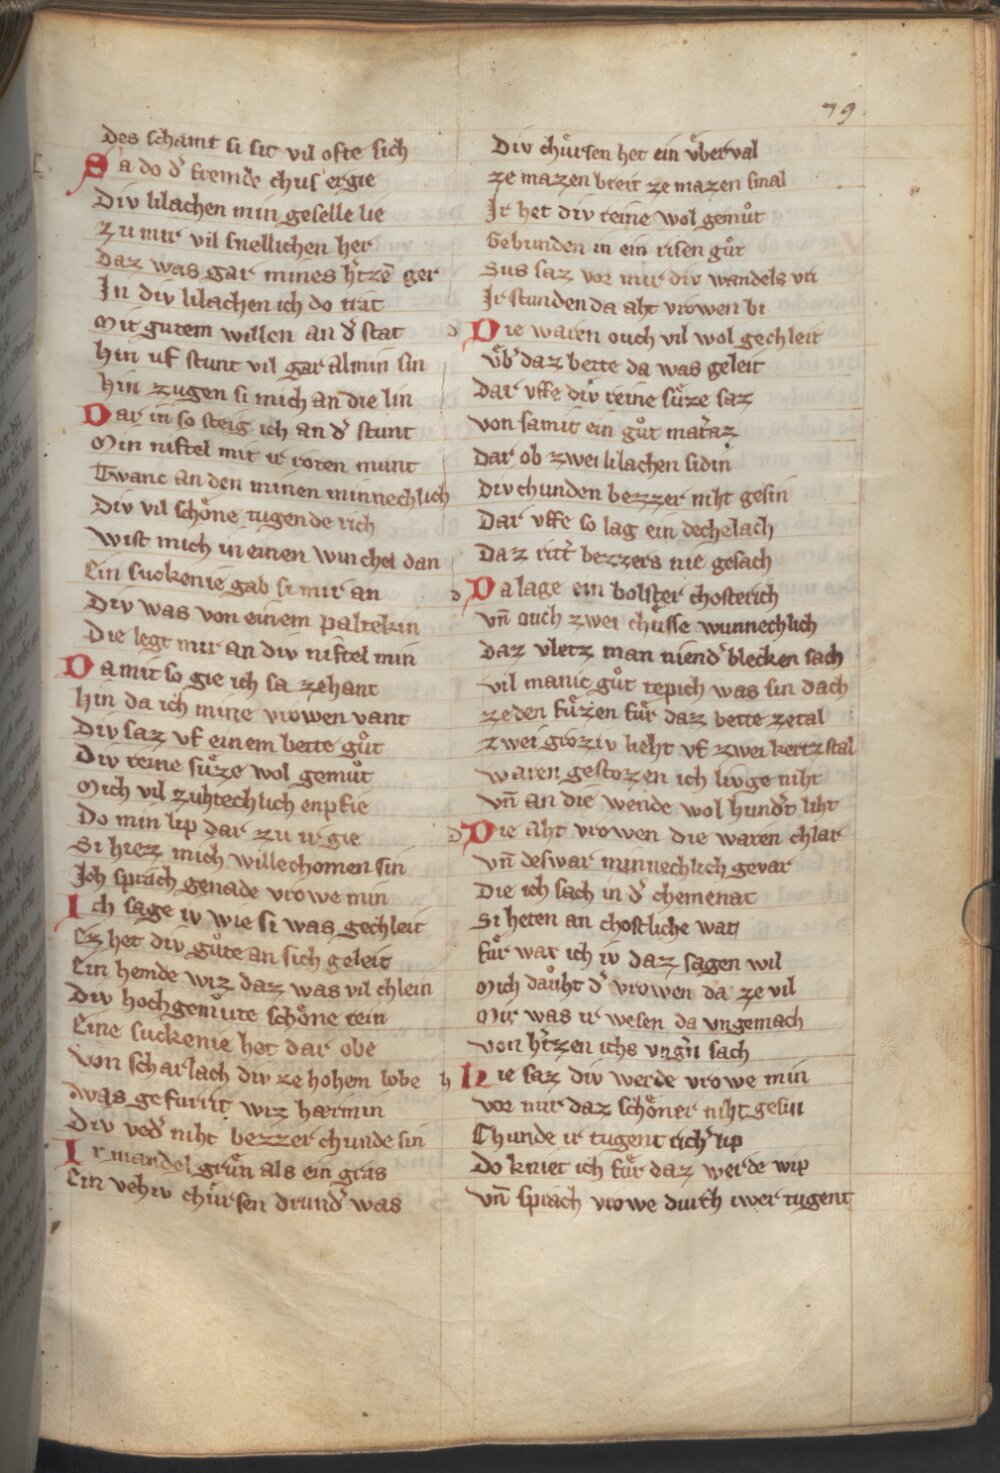 79
Des schamt si sit vil ofte sich
Sa do d̕ fremde chus ergie
Div lilachen min geselle lie
Zu mir vil snellichen her
Daz was gar mines h̕tzē ger
In div lilachen ich do trat
Mit gutem willen an d̕ stat
Hin uf stunt vil gar al min sin
Hin zugen si mich an die lin
Dar in so steig ich an d̕ stunt
Min niftel mit ir roten munt
Twanc an den minen minnechlich
Div vil schoͤne tugende rich
Wist mich in einen winchel dan
Ein suckenie gab si mir an
Div was von einem paltekin
Die legt mir an div niftel min
Da mit so gie ich sa zehant
Hin da ich mine vrowen vant
Div saz vf einem bette guͦt
Div reine suͤze wol gemuͦt
Mich vil zuhtechlich enpfie
Do min lip dar zu ir gie
Si hiez mich willechomen sin
Ich sprach genade vrowe min
Ich sage iv wie si was gechleit
Ez het div guͦte an sich geleit
Ein hemde wiz daz was vil chlein
Div hochgemuͦte schoͤne rein
Eine suckenie het dar obe
Von scharlach div ze hohem lobe
Was gefurrit wiz hærmin
Div ved̕ niht bezzer chunde sin
Ir mandel gruͤn als ein gras
Ein vehiv chuͤrsen drund̕ was
Div chuͤrsen het ein uͤberval
ze mazen breit ze mazen smal
Ir het div reine wol gemuͦt
Gebunden in ein risen guͦt
Sus saz vor mir div wandels vri
Ir stunden da aht vrowen bi
d Die waren ouch vil wol gechleit
uͤb̕ daz bette da was geleit
Dar vffe div reine suͤze saz
von samit ein guͦt mat̕az
Dar ob zwei lilachen sidin
Div chunden bezzer niht gesin
Dar vffe so lag ein dechelach
Daz ritt̕ bezzers nie gesach
d Da lage ein bolster chosterich
vn̄ ouch zwei chuͤsse wunnechlich
Daz vletz man niend̕ blecken sach
vil manic guͦt tepich was sin dach
ze den fuͤzen fuͤr daz bette zetal
zwei groziv lieht vf zwei kertzstal
waren gestozen ich livge niht
vn̄ an die wende wol hund̕t liht
D Die aht vrowen die waren chlar
vn̄ deswar minnechlich gevar
Die ich sach in d̕ chemenat
Si heten an chostliche wat
fuͤr war ich iv daz sagen wil
Mich dauͦht d̕ vrowen da ze vil
Mir was ir wesen da vngemach
von h̕tzen ichs vng̕n sach
h Hie saz div werde vrowe min
vor mir daz schoͤner niht gesin
Chunde ir tugent rich̕ lip
Do kniet ich fuͤr daz werde wip
vn̄ sprach vrowe durch iwer tugent